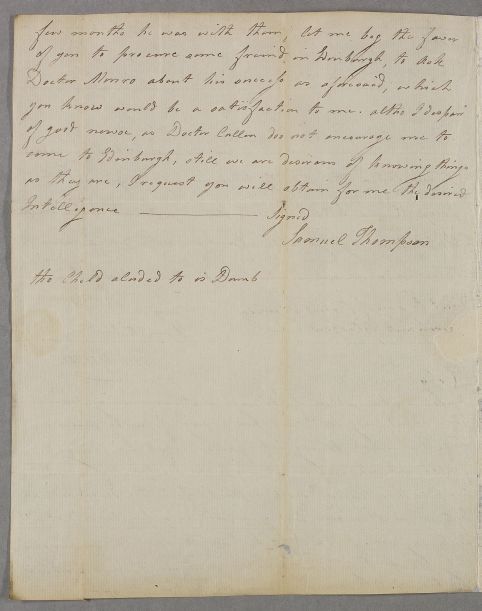 few months he was with them, let me beg the favor
of you to procure some freind, in Edinburgh, to ask
Doctor Monro about his success as aforesaid, which
you know would be a satisfaction to me. altho I despair
of good newse, as Doctor Cullen dos not encourage me to
come to Edinburgh, still we are desirous of knowing things
as they are, I request you will obtain for me the desired
Intelligence ———— Signed
Samuel Thompson
the Child aluded to is Dumb